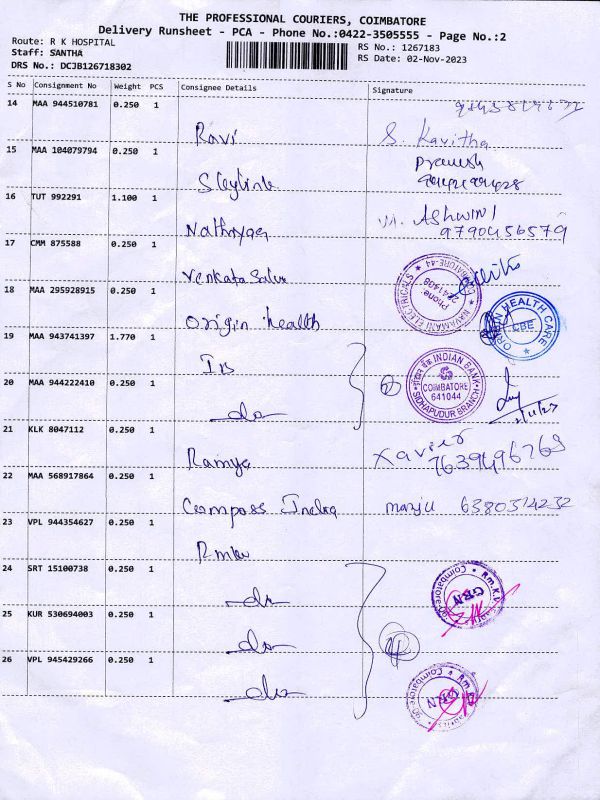 THE PROFESSIONAL COURIERS, COIMBATORE
Delivery Runsheet - PCA - Phone No.:0422-3505555 - Page No.:2
Route: R K HOSPITAL
Staff: SANTHA
DRS No.: DCJB126718302
RS No.: 1267183
RS Date: 02-Nov-2023
S No Consignment No Weight PCS Consignee Details Signature
14 MAA 944510781 0.250 1
Ravi S. Kavitha
15 MAA 104079794 0.250 1
Skylink
16 TUT 992291 1.100 1
Nathiyaa ASHWINI
9790456579
17 CMM 875588 0.250 1
Venkata Salu
NAVAMANI ELECTRICALS COIMBATORE-44 Phone 2241408
18 MAA 295928915 0.250 1
Origin health
ORIGIN HEALTH CARE CBE
19 MAA 943741397 1.770 1
IB
INDIAN BANK COIMBATORE 641044 SIDHAPUDUR BRANCH
20 MAA 944222410 0.250 1
do 2/11/23
21 KLK 8047112 0.250 1
Ramya Xavier
7639496769
22 MAA 568917864 0.250 1
Compass India manju 6380314232
23 VPL 944354627 0.250 1
Rmkv
24 SRT 15100738 0.250 1
do
25 KUR 530694003 0.250 1
do
26 VPL 945429266 0.250 1
do